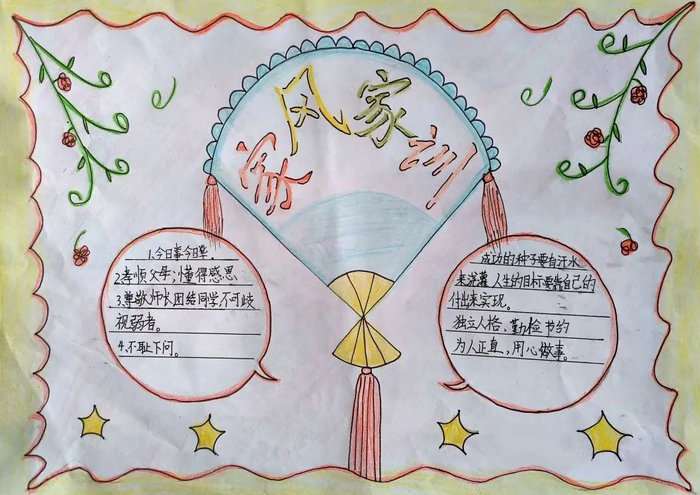 家风家训
1.今日事今日毕.
2.孝顺父母,懂得感恩
3.尊敬师长团结同学不可歧
视弱者。
4.不耻下问。
成功的种子要有汗水
来浇灌人生的目标要靠自己的
付出来实现。
独立人格、勤俭节约
为人正直,用心做事。